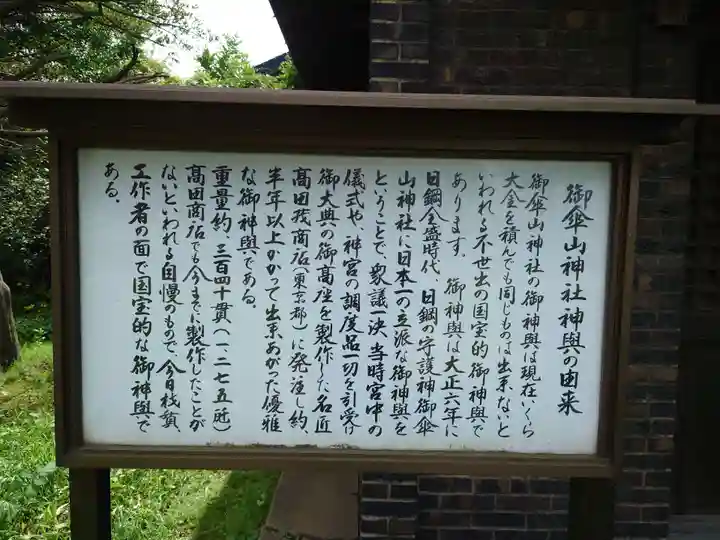 御傘山神社神輿の由来
御傘山神社の御神輿は現在いくら
大金を積んでも同じものは出来ないと
いわれる不世出の国宝的御神輿で
あります。 御神輿は大正六年に
日鋼全盛時代、日鋼の守護神御傘
山神社に日本一の立派な御神輿を
ということで、衆議一決、当時宮中の
儀式や、神宮の調度品一切を引受け
御大典の御高座を製作した名匠
高田茂商店(東京都)に発注し約
半年以上かかって出来あがった優雅
な御神輿である。
重量約、三百四十貫(一、二七五瓩)
高田商店でも今までに製作したことが
ないといわれる自慢のもので、今日材質、
工作者の面で国宝的な御神輿で
ある。